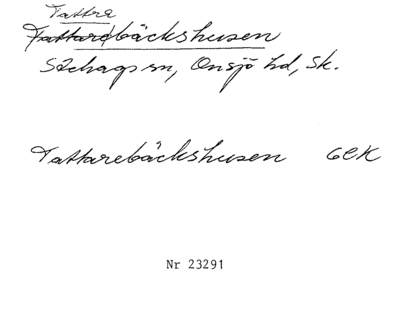 Tattra
Tattare|bäckshusen
Stehags sn, Onsjö hd, Sk.
Tattarebäckshusen GEK
Nr 23291